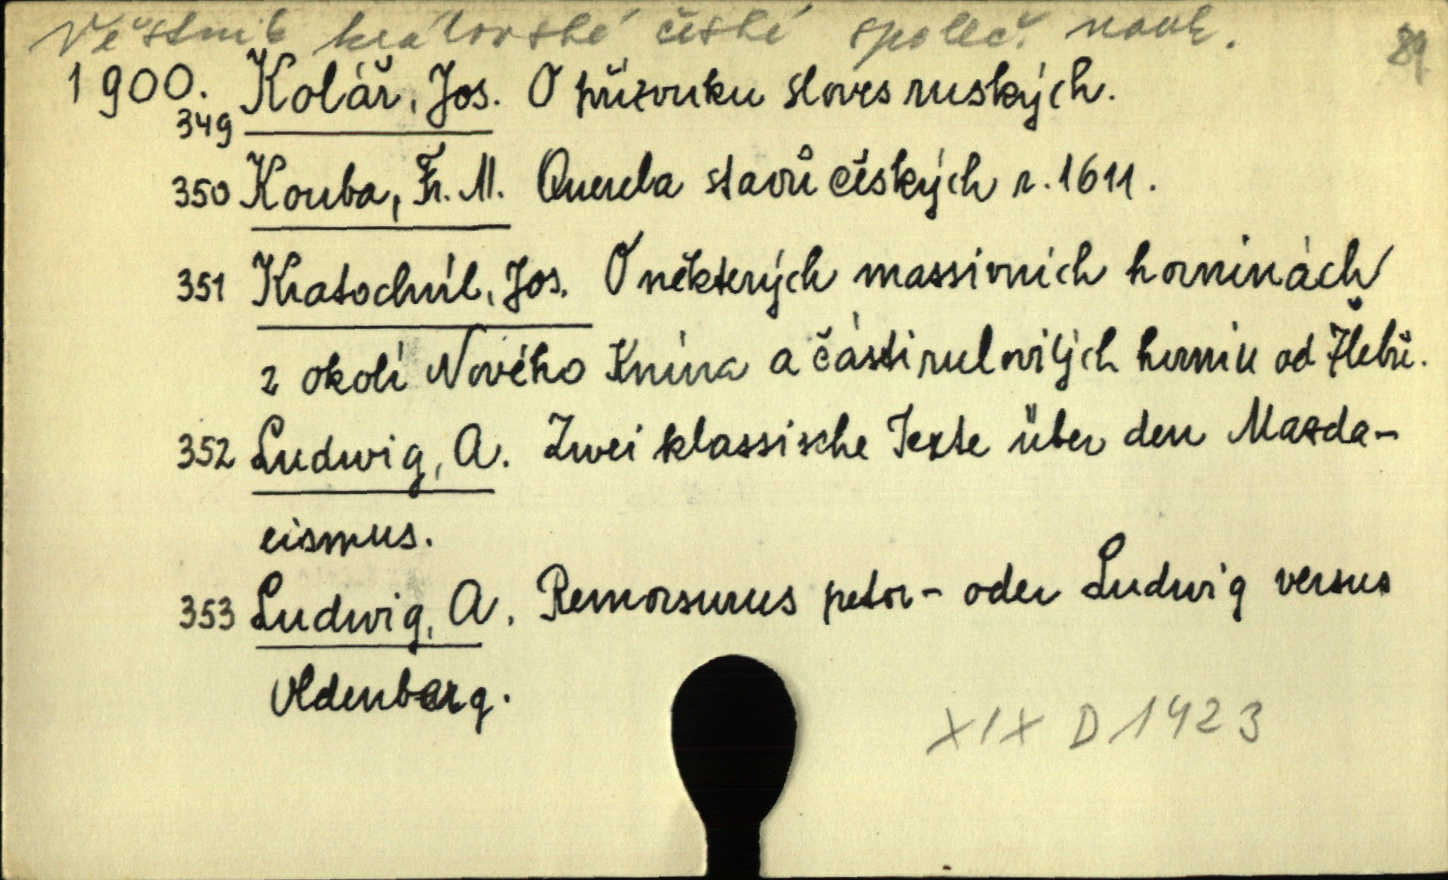 Věstník královské české společ. nauk.
89
1900. Kolář, Jos. O přízvuku sloves ruských.
349
350 Kouba, Fr. M. Querela stavů českých r. 1611.
351 Kratochvíl, Jos. O některých massivních horninách
z okolí Nového Knína a části rulovitých hornin od Žlebů.
352 Ludwig, A. Zwei klassische Texte über den Mazda-
eismus.
353 Ludwig, A. Remorsurus petor - oder Ludwig versus
Oldenberg.
XIX D 1423